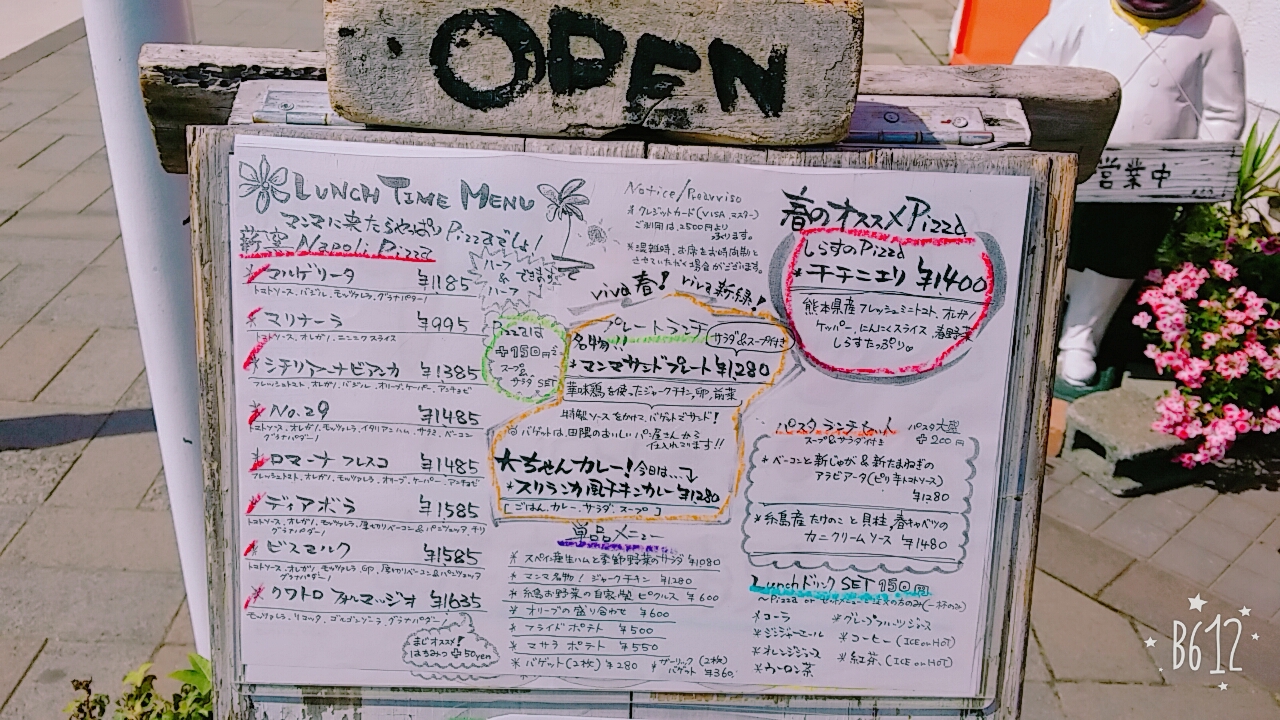 OPEN
営業中
LUNCH TIME MENU
マンマに来たらやっぱり Pizzaでしょ!
薪窯 Napoli Pizza
ハーフ&ハーフ
できます
マルゲリータ ¥1185
トマトソース、バジル、モッツァレラ、グラナパダーノ
マリナーラ ¥995
トマトソース、オレガノ、ニンニクスライス
シチリアーナビアンカ ¥1385
フレッシュトマト、オレガノ、バジル、オリーブ、ケーパー、アンチョビ
No.29 ¥1485
トマトソース、オレガノ、モッツァレラ、イタリアンハム、サラミ、ベーコン
グラナパダーノ
ロマーナ フレスコ ¥1485
フレッシュトマト、オレガノ、モッツァレラ、オリーブ、ケーパー、アンチョビ
ディアボラ ¥1585
トマトソース、オレガノ、モッツァレラ、厚切りベーコン&パンチェッタ、チリ
グラナパダーノ
ビスマルク ¥1585
トマトソース、オレガノ、モッツァレラ、卵、厚切りベーコン&パンチェッタ
グラナパダーノ
クワトロ フォルマッジオ ¥1635
モッツァレラ、リコッタ、ゴルゴンゾーラ、グラナパダーノ
まじオススメ!
はちみつ ✚50yen
Pizzaは
✚150円で
スープ
&
サラダ SET
Notice/Preavviso
*クレジットカード(VISA、マスター)
ご利用は、2500円より
承ります。
*混雑時、お席をお時間制と
させていただく場合がございます。
viva 春! viva 新緑!
プレートランチ サラダ&スープ付き
名物...
*マンマサンドプレート ¥1280
華味鶏を使ったジャークチキン、卵、前菜
特製ソースをかけて、バゲットでサンド!
バゲットは、田隈のおいしいパン屋さんから
仕入れてます!!
大ちゃんカレー! 今日は...
*スリランカ風チキンカレー ¥1280
[ごはん、カレー、サラダ、スープ]
単品メニュー
*スペイン産生ハムと季節野菜のサラダ ¥1080
*マンマ名物! ジャークチキン ¥1280
*糸島お野菜の自家製ピクルス ¥600
*オリーブの盛り合わせ ¥600
*フライドポテト ¥500
*マサラ ポテト ¥550
*バゲット(2枚) ¥280 *ガーリック(2枚)
バゲット ¥360
春のオススメPizza
しらすのPizza
*チチニエリ ¥1400
熊本県産フレッシュミニトマト、オレガノ
ケッパー、にんにくスライス、春野菜
しらすたっぷり
パスタランチセット
スープ&サラダ付き
パスタ大盛
✚200円
*ベーコンと新じゃが&新たまねぎの
アラビアータ(ピリ辛トマトソース)
¥1280
*糸島産たけのこと貝柱、春キャベツの
カニクリームソース ¥1480
Lunchドリンク SET 150円
*コーラ
*グレープフルーツジュース
*ジンジャーエール
*コーヒー(ICE or HOT)
*オレンジジュース
*紅茶(ICE or HOT)
*ウーロン茶
B612